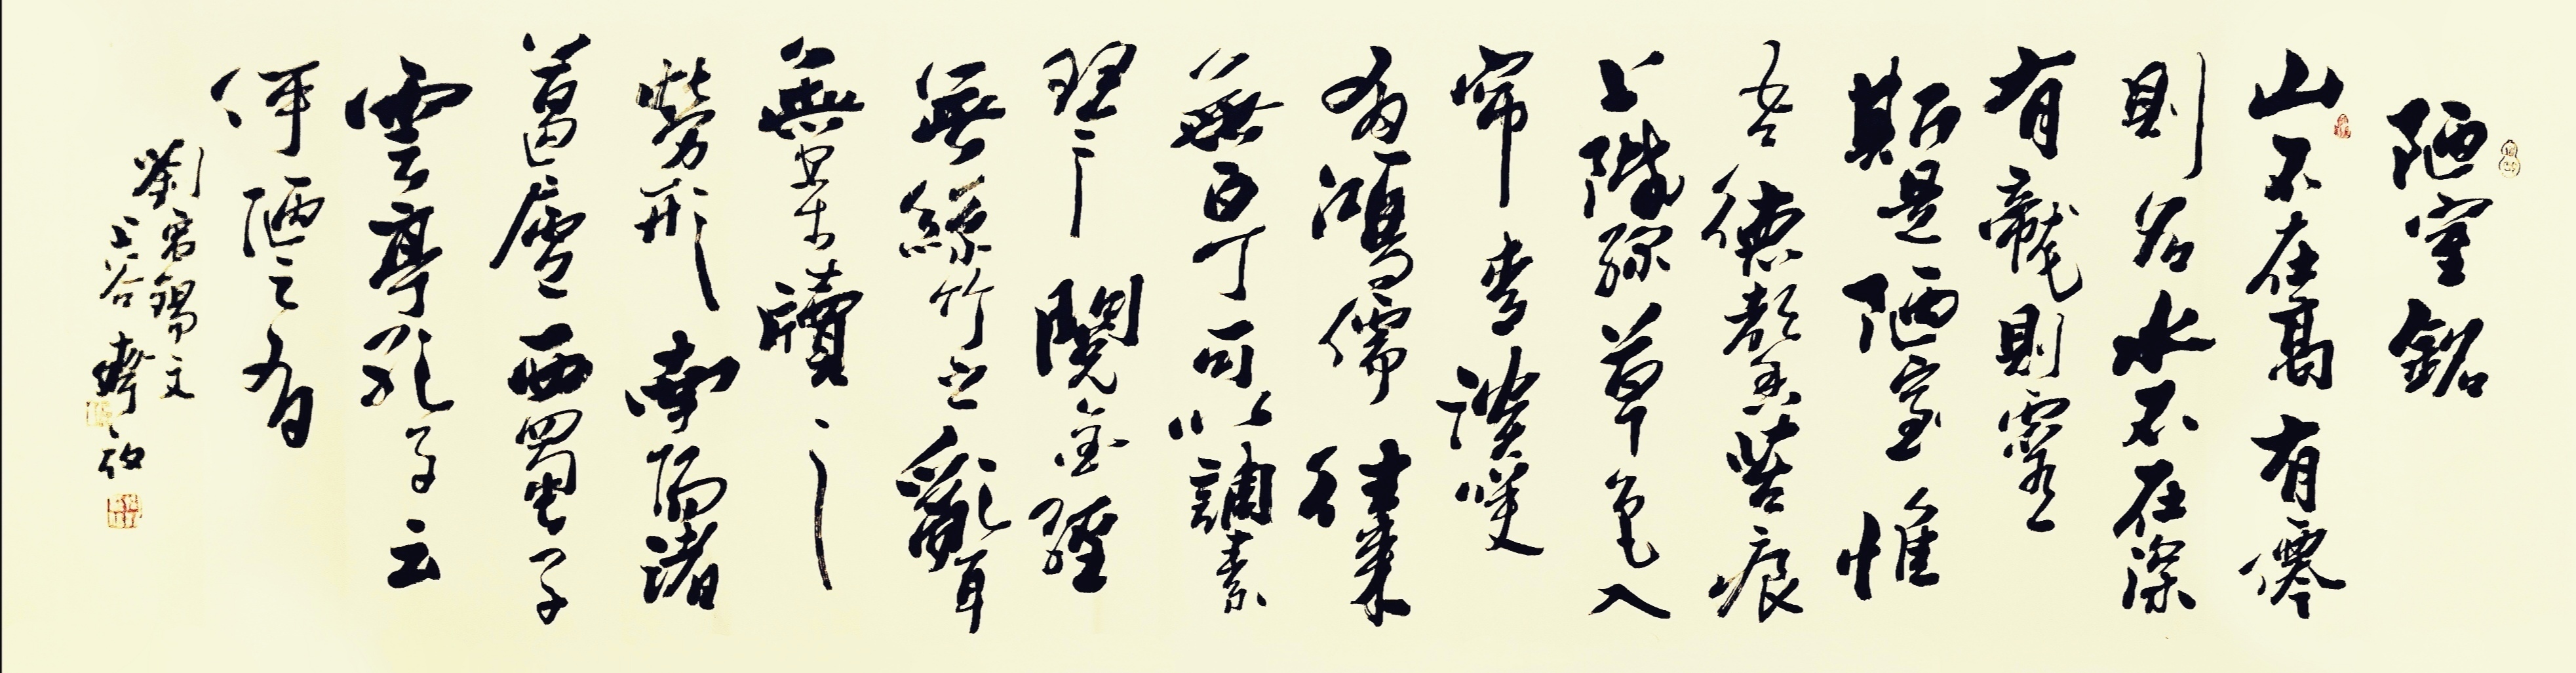 陋室銘
山不在高有僊
則名水不在深
有龍則靈
斯是陋室惟
吾德馨苔痕
上階綠草色入
帘青談咲
有鴻儒往來
無白丁可以調素
琴閱金經
無絲竹之亂耳
無案牘之
勞形南陽諸
葛廬西蜀子
雲亭孔子云
何陋之有
劉禹錫文
上谷